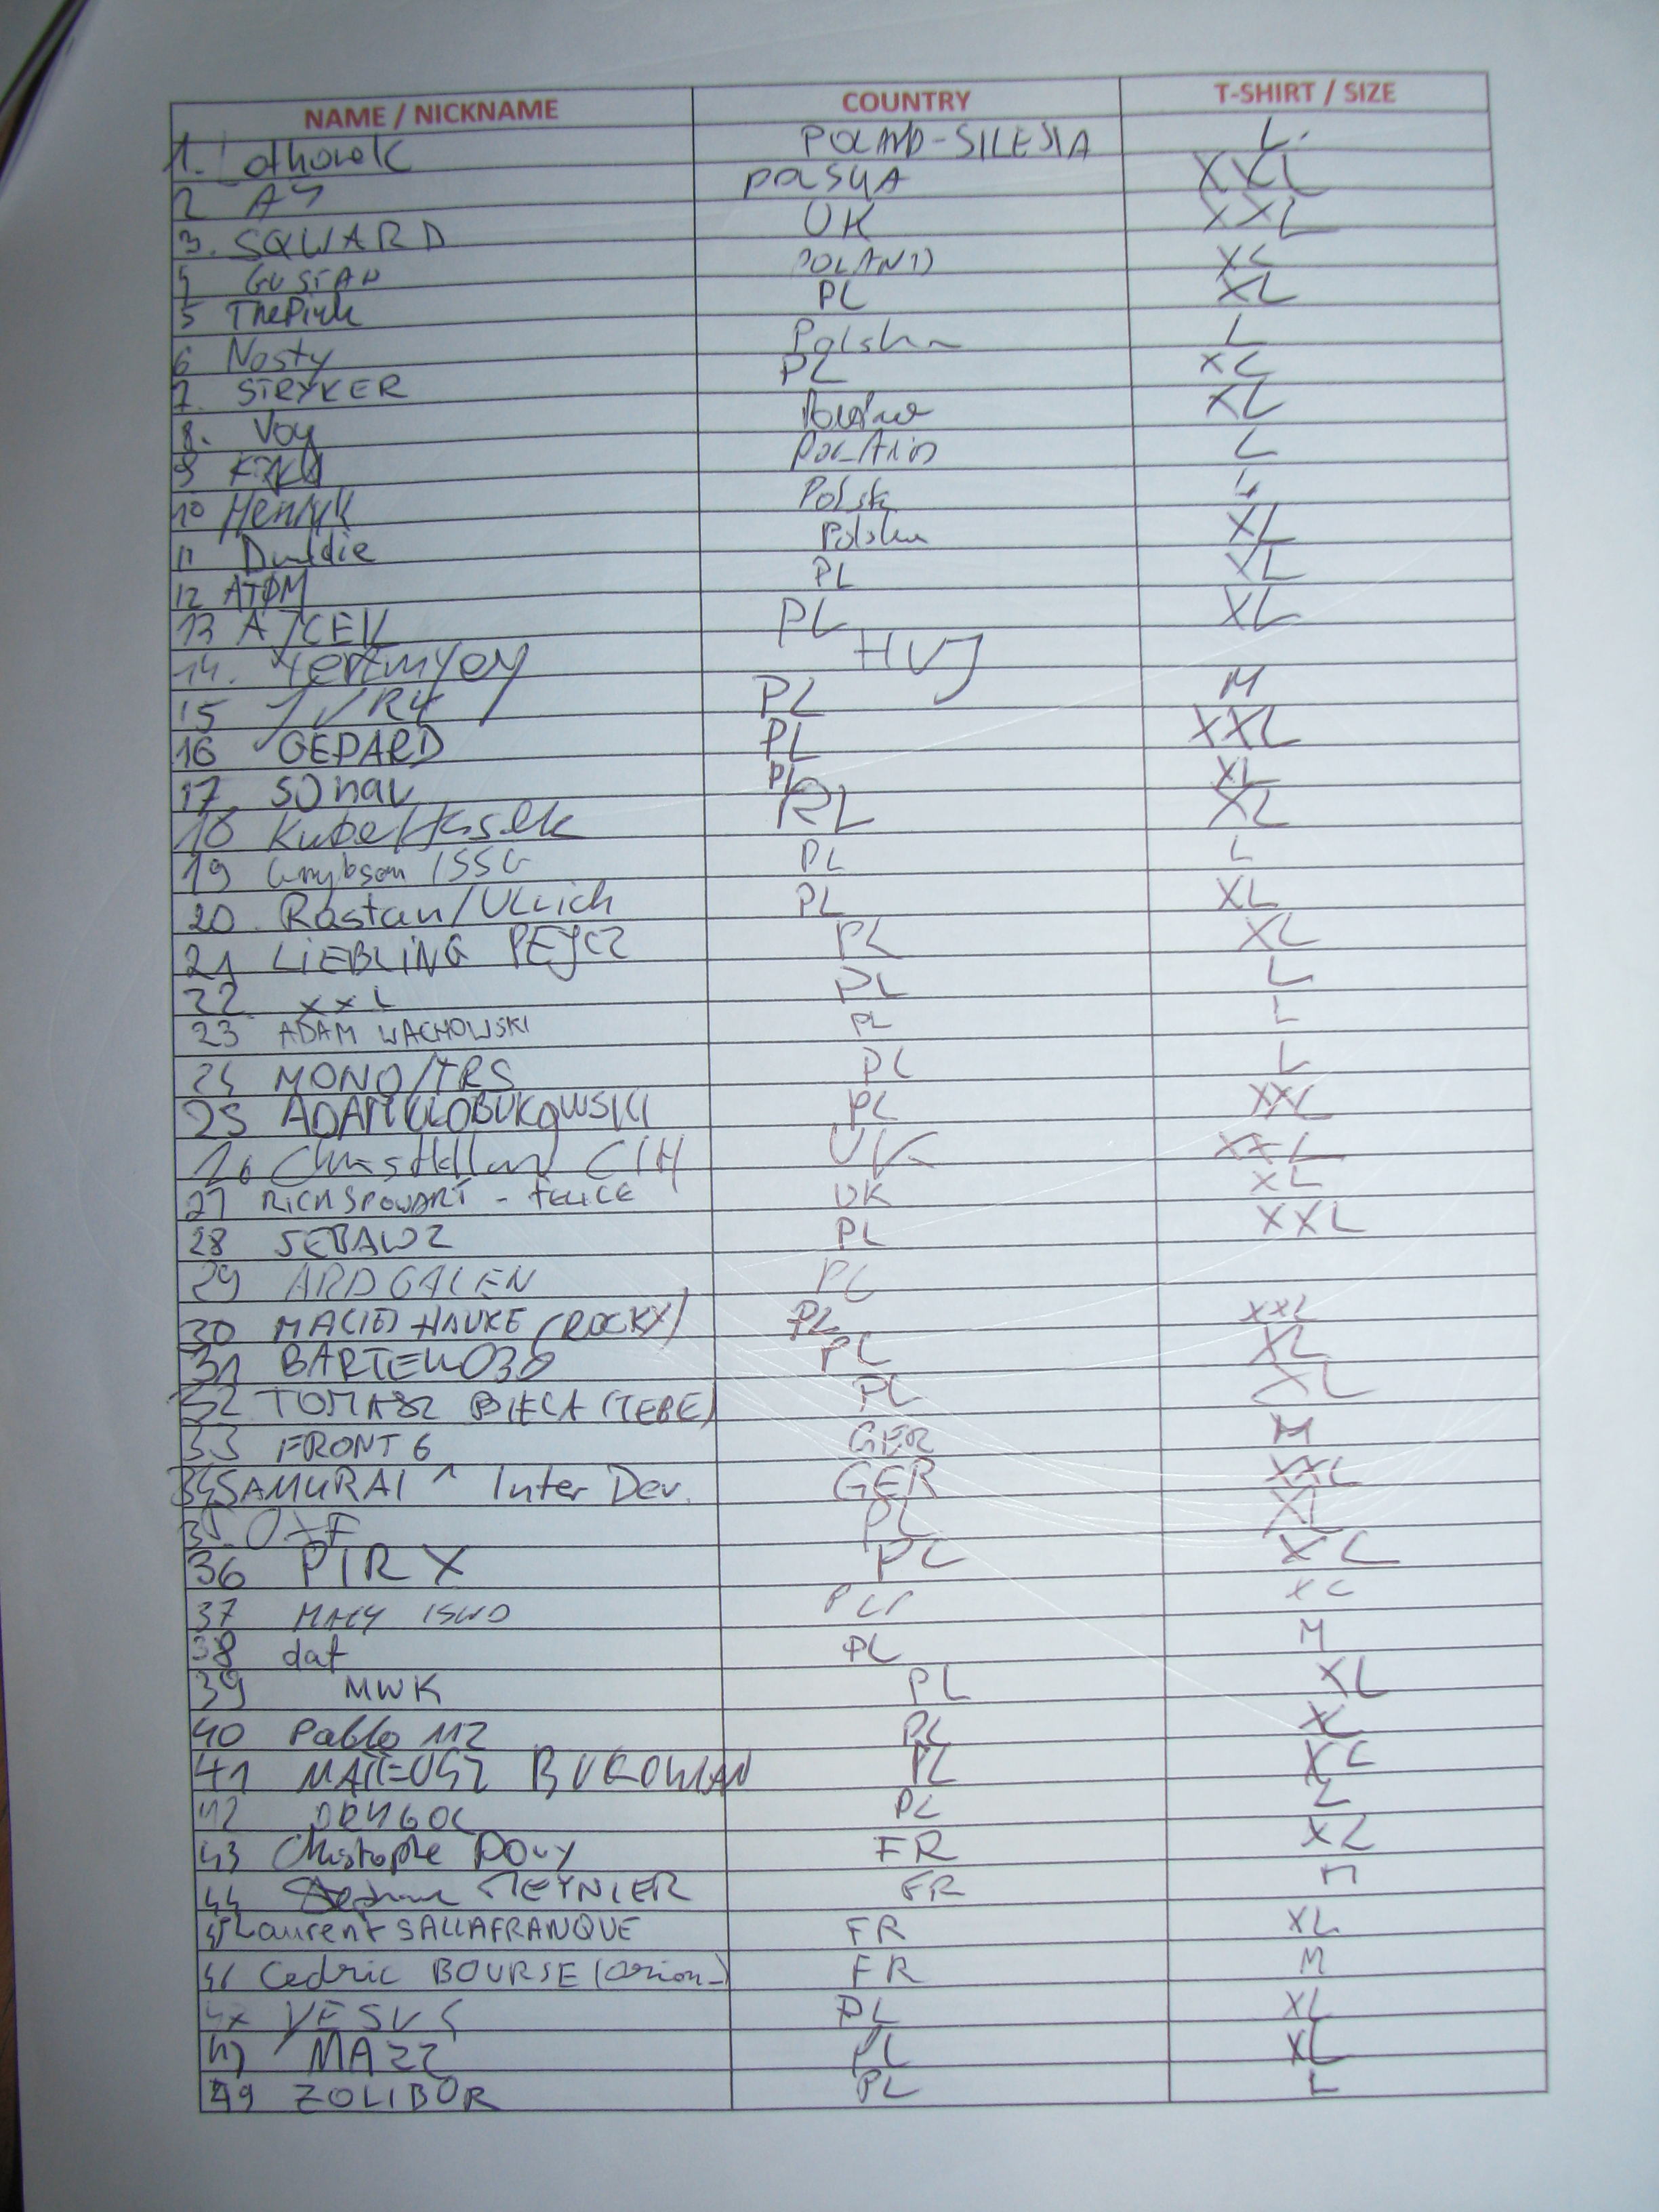 NAME / NICKNAME COUNTRY T-SHIRT / SIZE
1. Lotharek POLAND-SILESIA L.
2 POLSKA XXL
3. SQWARD UK XXL
4 GUSTAW POLAND XL
5 ThePink PL XL
6 Nosty Polska L
7. STRYKER PL XL
8. Voy XL
9 POLAND L
10 Henryk Polska L
11 Polska XL
12 ATØM PL XL
13 PL XL
14. HUJ
15 PL M
16 GEPARD PL XXL
17. PL XL
18 PL XL
19 PL L
20. Rastan/Ullrich PL XL
21 LIEBLING PEJCZ PL XL
22 XXL PL L
23 ADAM WACHOWSKI PL L
24 MONO/TRS PL L
25 ADAM KŁOBUKOWSKI PL XXL
26 UK XXL
27 RICH SPOWART - UK XL
28 SEBAWZ PL XXL
29 ARDGALEN PL
30 MACIEJ HAUKE (ROCKY) PL XXL
31 BARTEK030 PL XL
32 TOMASZ BIELA (TEBE) PL XL
33 FRONT6 GER M
34 SAMURAI ^ Inter Dev. GER XXL
35. PL XL
36 PIRX PL XL
37 XL
38 daf PL M
39 MWK PL XL
40 Pablo 112 PL XL
41 MATEUSZ BUKOWIAN PL XL
42 DRYGOL PL L
43 Christophe Pouy FR XZ
44 MEYNIER FR M
45 Laurent SALLAFRANQUE FR XL
46 Cedric BOURSE (orion_) FR M
47 PL XL
MAZZ PL XL
49 ZOLIBOR PL L